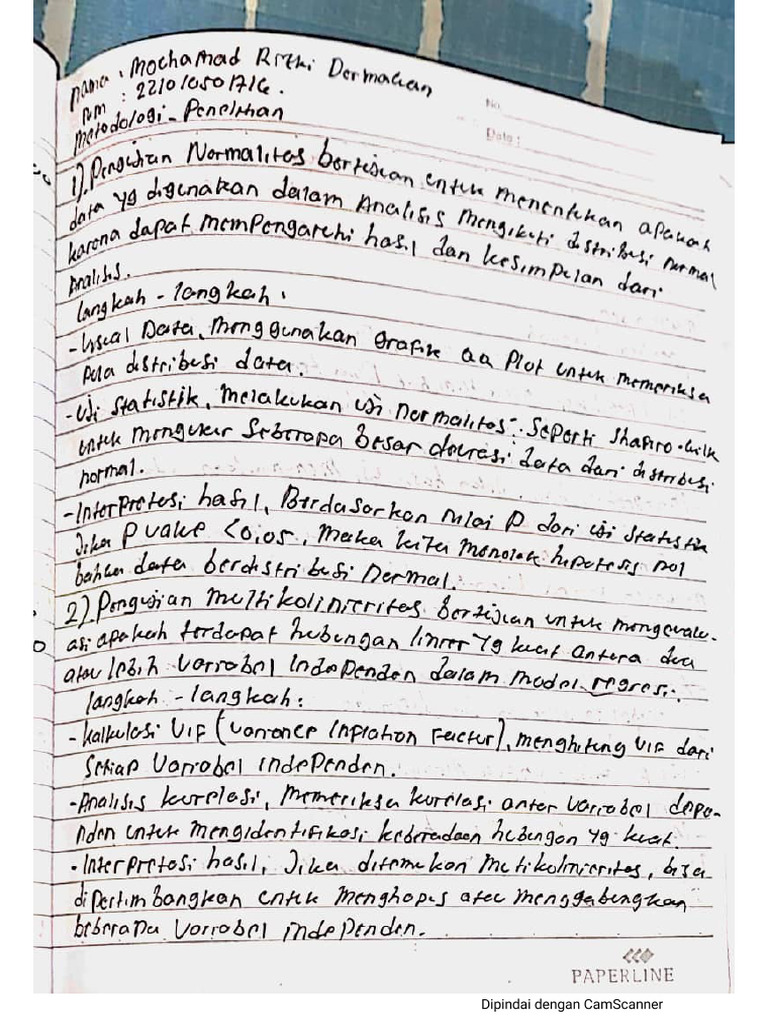 nama : Mochamad Rizki Dermawan
npm : 2210101501716.
Metodologi - Penelitian
No.
Date :
1). Pengujian Normalitas bertujuan untuk menentukan apakah
data yg digunakan dalam Analisis mengikuti distribusi normal
karena dapat mempengaruhi hasil dan kesimpulan dari
Analisis.
langkah - langkah :
- Visual Data, menggunakan grafik QQ Plot untuk memeriksa
pola distribusi data.
- Uji Statistik, melakukan uji normalitas : seperti Shapiro-wilk
untuk mengukur seberapa besar deviasi data dari distribusi
normal.
- Interpretasi hasil, Berdasarkan nilai P dari uji statistik
Jika P value < 0,05, maka kita menolak hipotesis nol
bahwa data berdistribusi normal.
2). Pengujian multikolinieritas bertujuan untuk mengevalu-
asi apakah terdapat hubungan linier yg kuat antara dua
atau lebih variabel independen dalam model regresi.
langkah - langkah :
- Kalkulasi VIF (variance Inflation Factur), menghitung VIF dari
setiap variabel independen.
- Analisis korelasi, memeriksa korelasi antar variabel depe-
nden untuk mengidentifikasi keberadaan hubungan yg kuat.
- Interpretasi hasil, Jika ditemukan multikolinieritas, bisa
dipertimbangkan untuk menghapus atau menggabungkan
beberapa variabel independen.
PAPERLINE
Dipindai dengan CamScanner